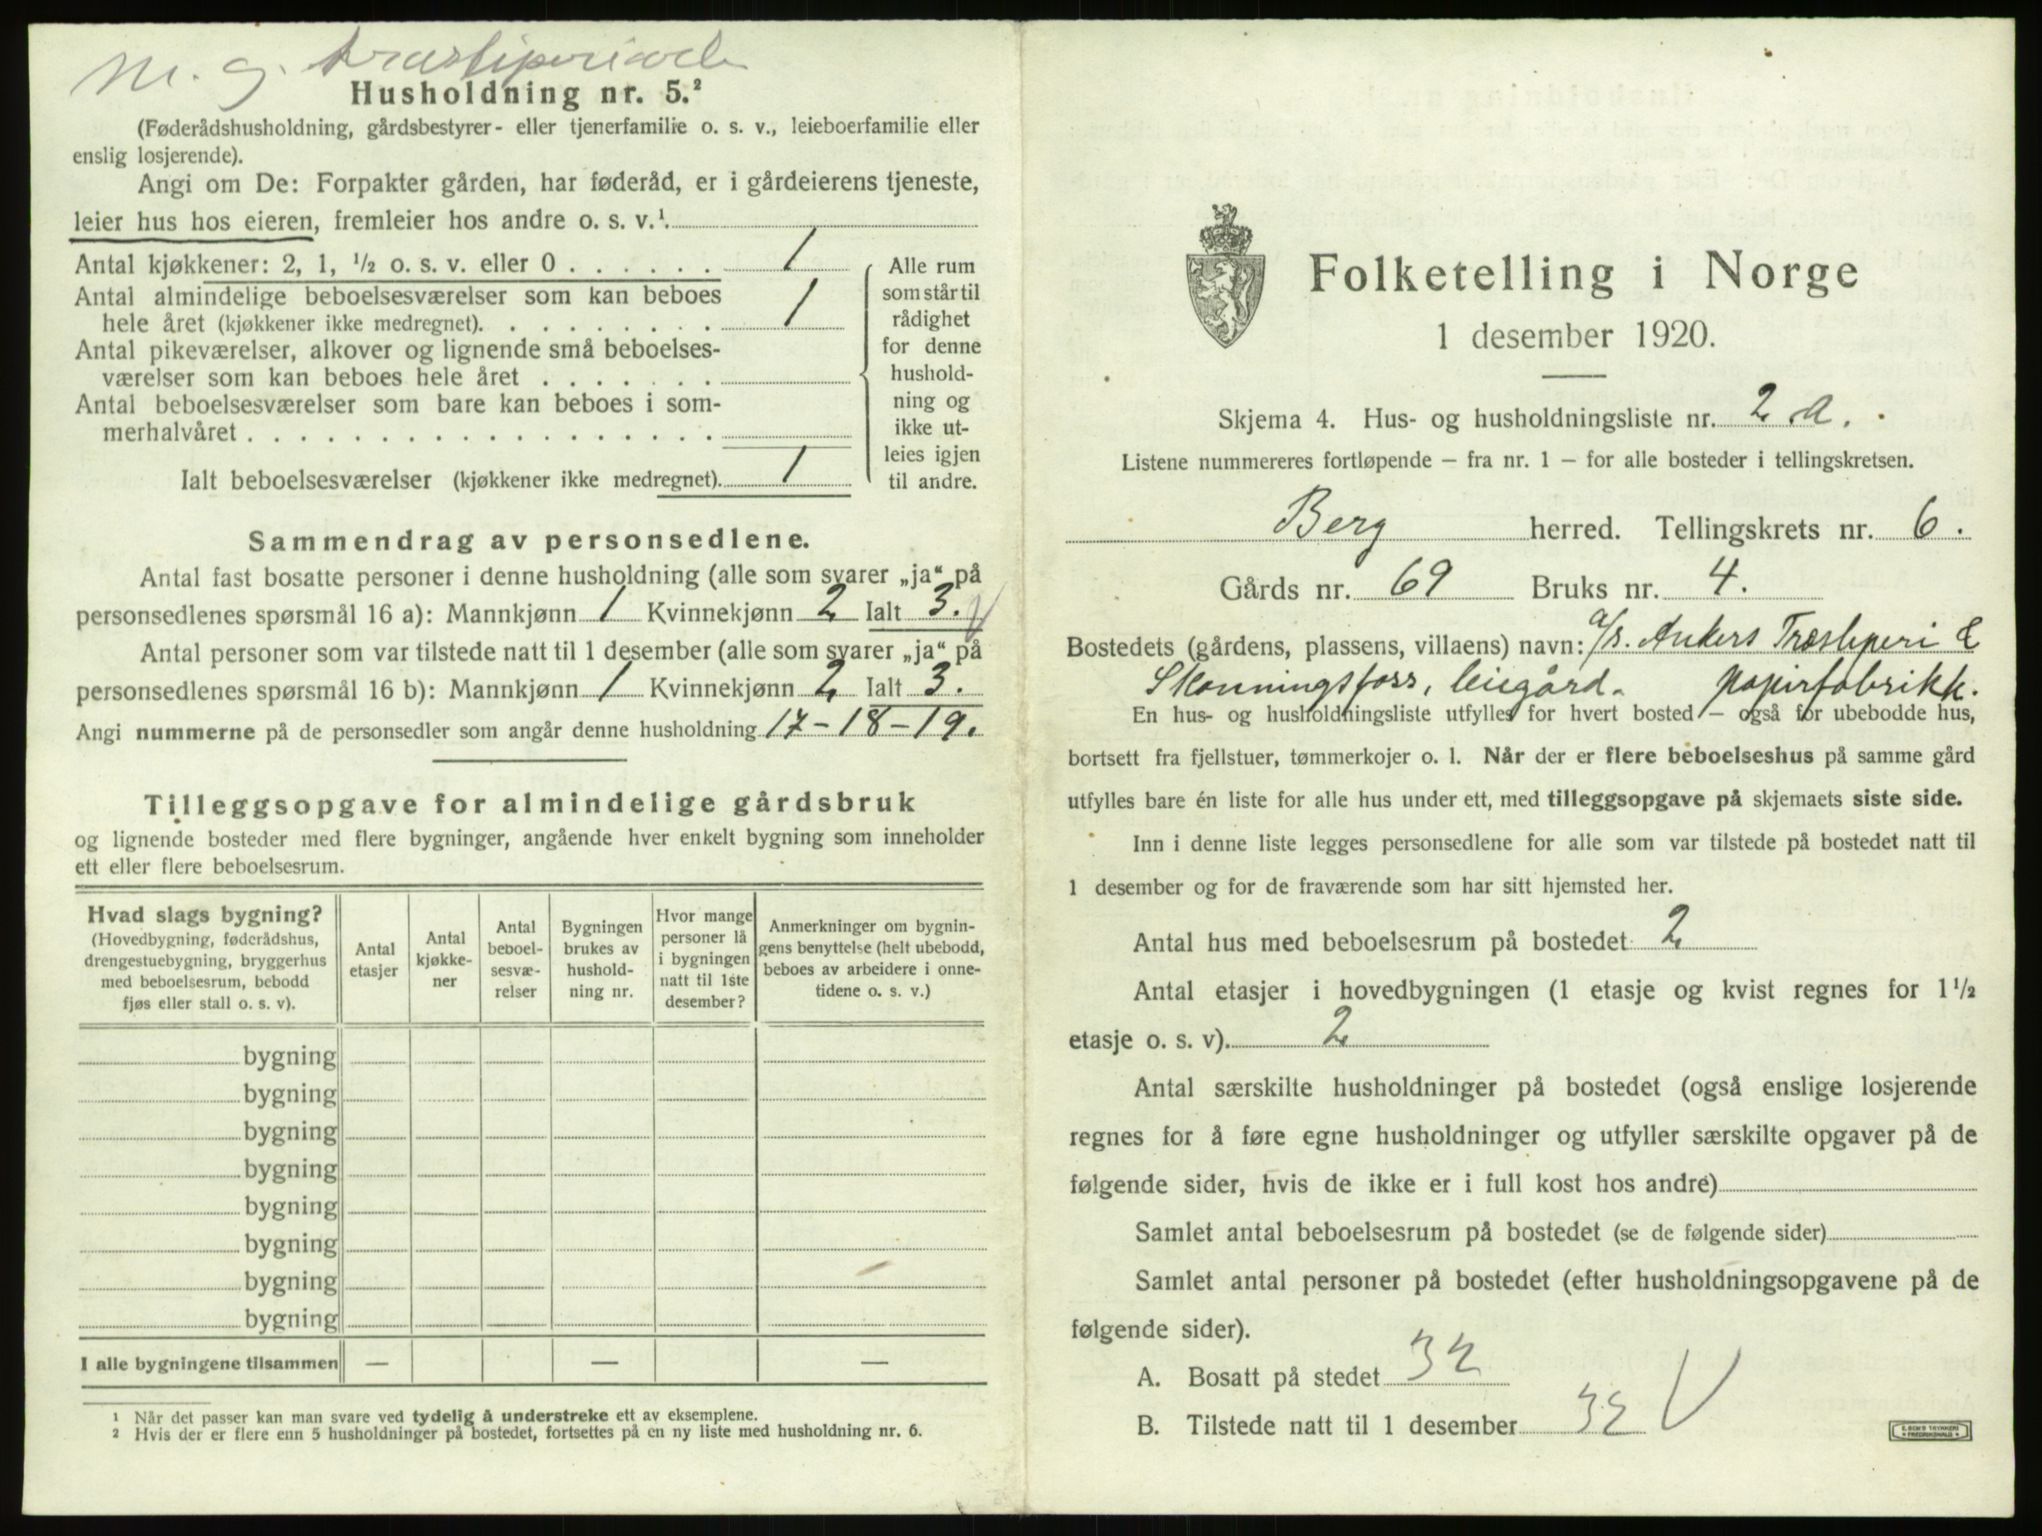 M. G. Træsliperiarb
Husholdning nr. 5.²
(Føderådshusholdning, gårdsbestyrer- eller tjenerfamilie o. s. v., leieboerfamilie eller
enslig losjerende).
Angi om De: Forpakter gården, har føderåd, er i gårdeierens tjeneste,
leier hus hos eieren, fremleier hos andre o. s. v.¹.
Antal kjøkkener: 2, 1, ½ o. s. v. eller 0 . . . . . . 1
Antal almindelige beboelsesværelser som kan beboes
hele året (kjøkkener ikke medregnet). . . . . . . . . 1
Antal pikeværelser, alkover og lignende små beboelses-
værelser som kan beboes hele året . . . . . . .
Antal beboelsesværelser som bare kan beboes i som-
merhalvåret . . . . . . . . . . . . . . . . . .
Ialt beboelsesværelser (kjøkkener ikke medregnet). 1
Alle rum
som står til
rådighet
for denne
hushold-
ning og
ikke ut-
leies igjen
til andre.
Sammendrag av personsedlene.
Antal fast bosatte personer i denne husholdning (alle som svarer „ja“ på
personsedlenes spørsmål 16 a): Mannkjønn 1 Kvinnekjønn 2 Ialt 3. V
Antal personer som var tilstede natt til 1 desember (alle som svarer „ja“ på
personsedlenes spørsmål 16 b): Mannkjønn 1 Kvinnekjønn 2 Ialt 3.
Angi nummerne på de personsedler som angår denne husholdning 17-18-19.
Tilleggsopgave for almindelige gårdsbruk
og lignende bosteder med flere bygninger, angående hver enkelt bygning som inneholder
ett eller flere beboelsesrum.
Hvad slags bygning?
(Hovedbygning, føderådshus,
drengestuebygning, bryggerhus
med beboelsesrum, bebodd
fjøs eller stall o. s. v).
Antal
etasjer
Antal
kjøkke-
ner
Antal
beboel-
sesvæ-
relser
Bygningen
brukes av
hushold-
ning nr.
Hvor mange
personer lå
i bygningen
natt til 1ste
desember?
Anmerkninger om bygnin-
gens benyttelse (helt ubebodd,
beboes av arbeidere i onne-
tidene o. s. v.)
bygning
bygning
bygning
bygning
bygning
bygning
bygning
bygning
I alle bygningene tilsammen — — —
¹ Når det passer kan man svare ved tydelig å understreke ett av eksemplene.
² Hvis der er flere enn 5 husholdninger på bostedet, fortsettes på en ny liste med husholdning nr. 6.
Folketelling i Norge
1 desember 1920.
Skjema 4. Hus- og husholdningsliste nr. 2 a.
Listene nummereres fortløpende — fra nr. 1 — for alle bosteder i tellingskretsen.
Berg herred. Tellingskrets nr. 6.
Gårds nr. 69 Bruks nr. 4.
Bostedets (gårdens, plassens, villaens) navn: a/s. Ankers Træsliperi &
Skonningsfoss, leiegård. papirfabrikk.
En hus- og husholdningsliste utfylles for hvert bosted — også for ubebodde hus,
bortsett fra fjellstuer, tømmerkojer o. l. Når der er flere beboelseshus på samme gård
utfylles bare én liste for alle hus under ett, med tilleggsopgave på skjemaets siste side.
Inn i denne liste legges personsedlene for alle som var tilstede på bostedet natt til
1 desember og for de fraværende som har sitt hjemsted her.
Antal hus med beboelsesrum på bostedet 2
Antal etasjer i hovedbygningen (1 etasje og kvist regnes for 1½
etasje o. s. v). 2
Antal særskilte husholdninger på bostedet (også enslige losjerende
regnes for å føre egne husholdninger og utfyller særskilte opgaver på de
følgende sider, hvis de ikke er i full kost hos andre)
Samlet antal beboelsesrum på bostedet (se de følgende sider)
Samlet antal personer på bostedet (efter husholdningsopgavene på de
følgende sider).
A. Bosatt på stedet 32
B. Tilstede natt til 1 desember 32 V